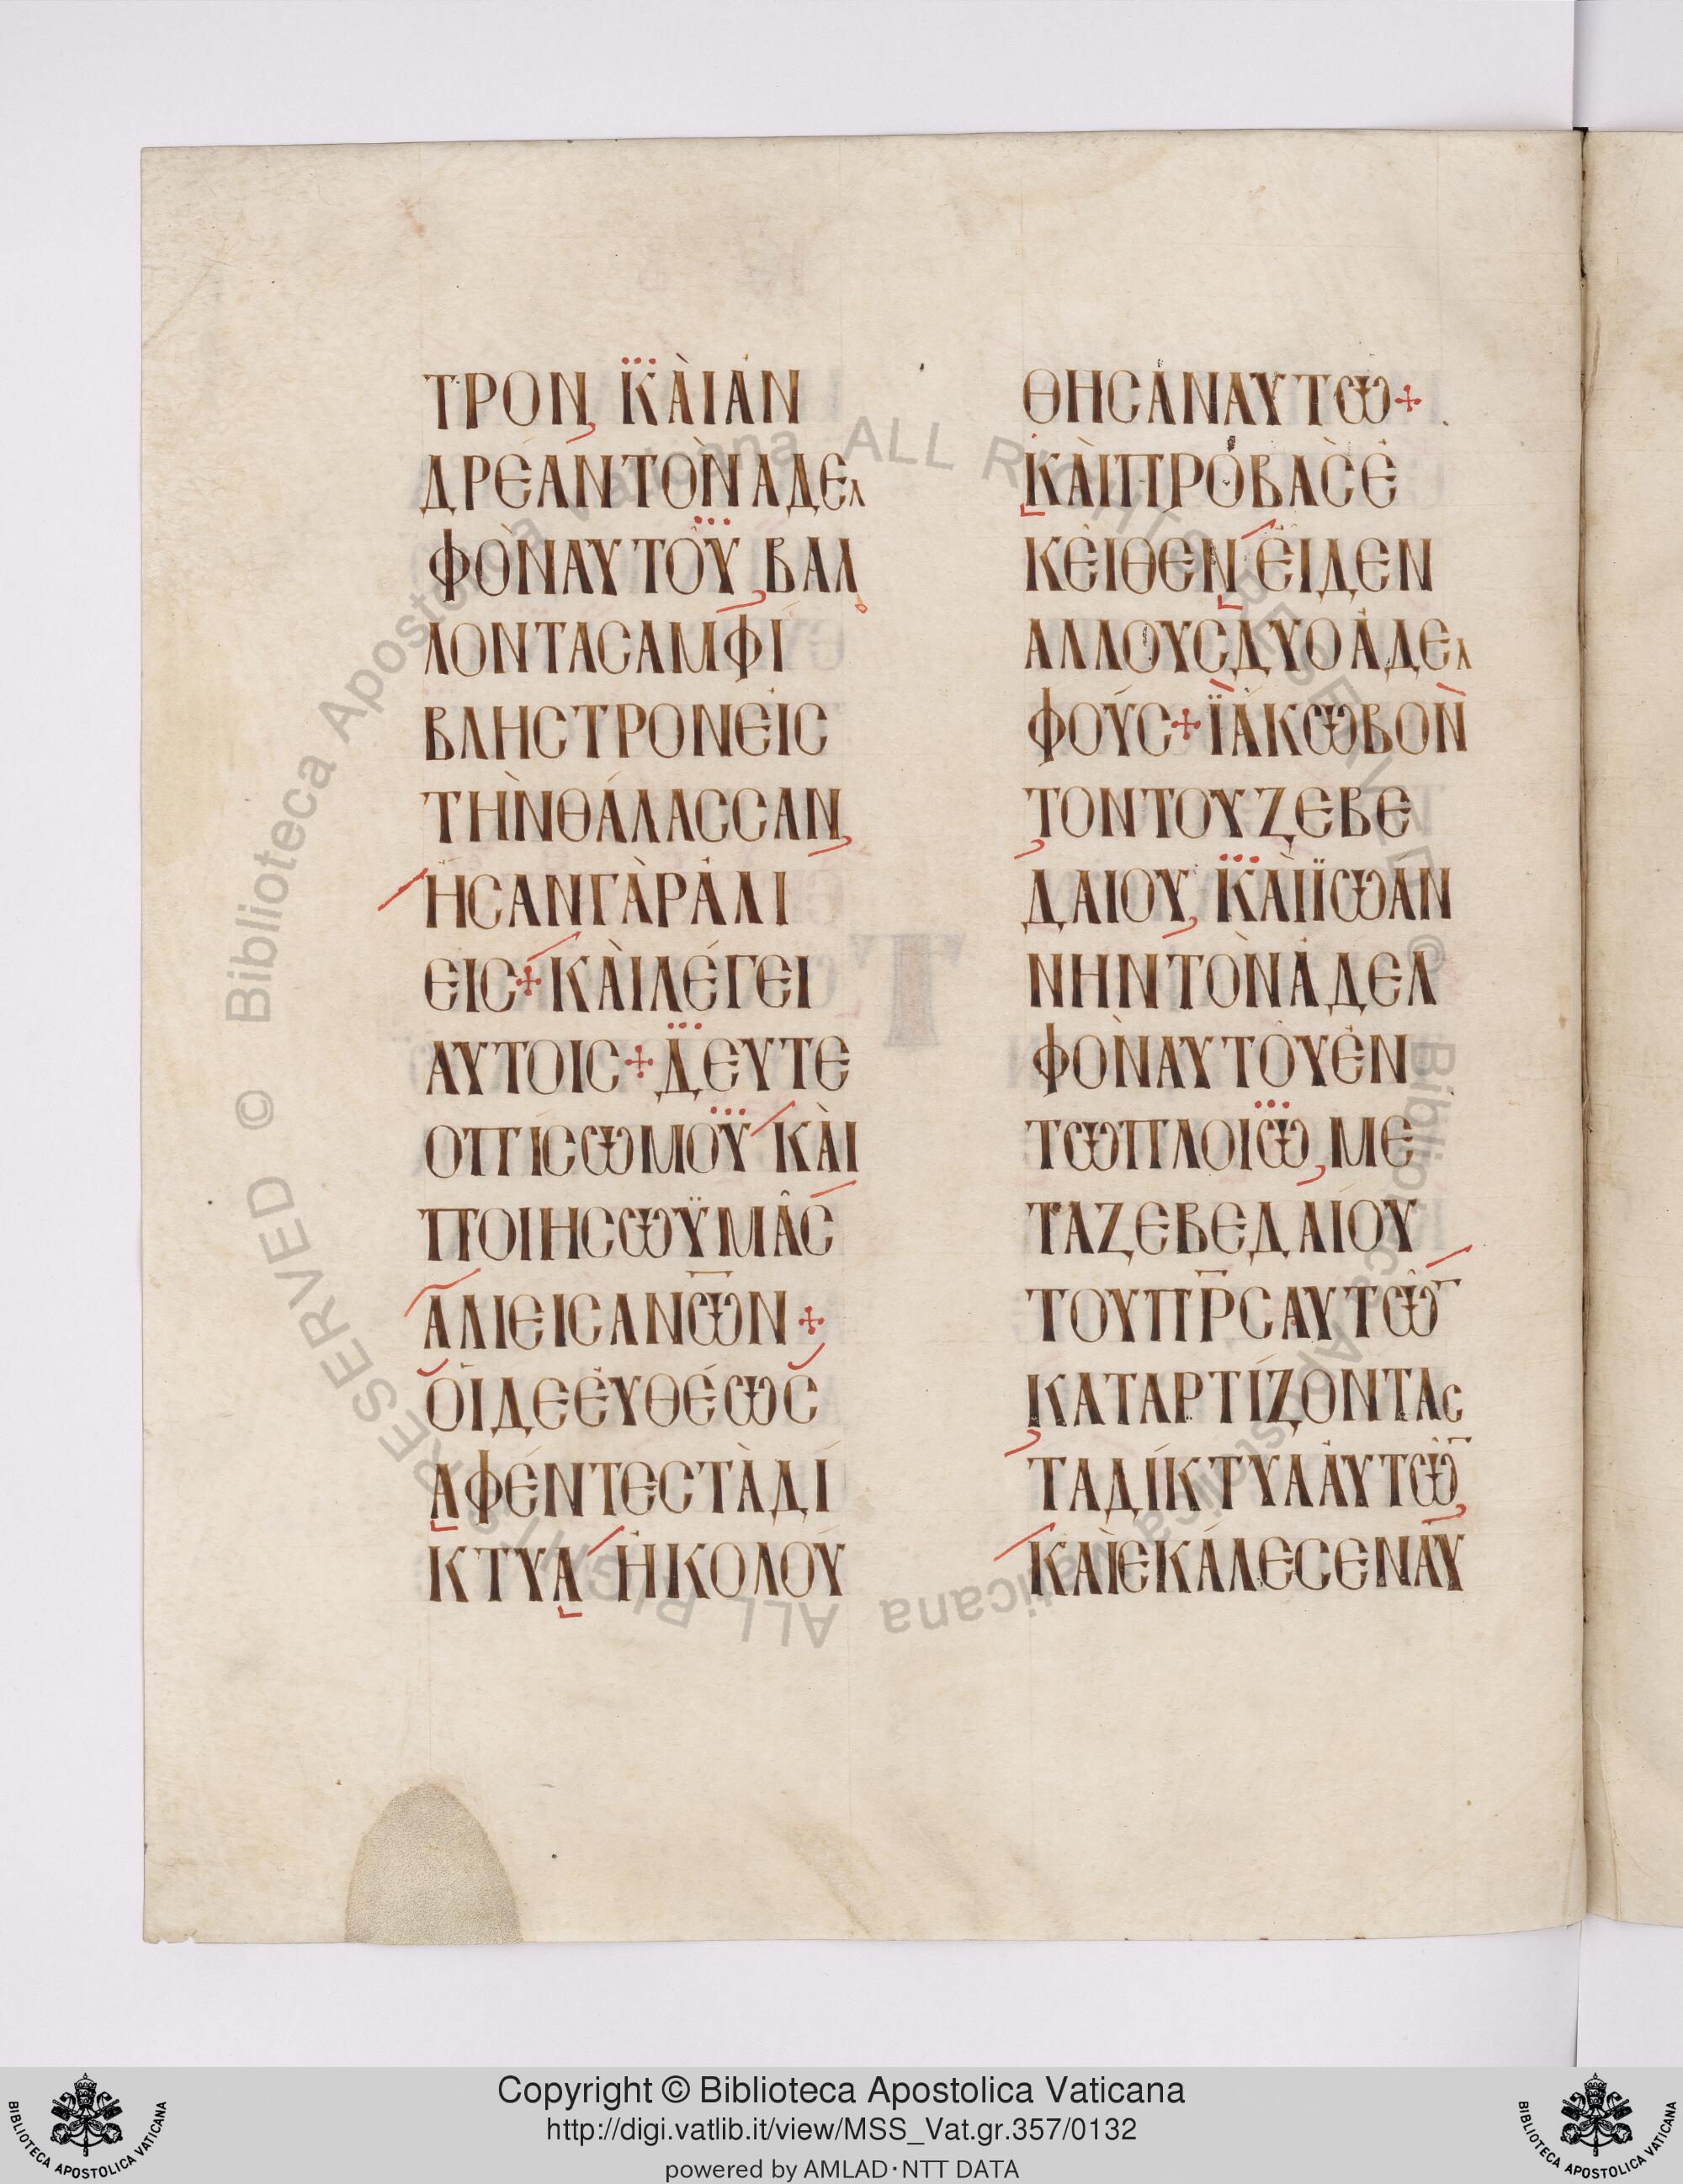 ΤΡΟΝ, ΚΑΙ ΑΝ
ΔΡΕΑΝ ΤΟΝ ΑΔΕΛ
ΦΟΝ ΑΥΤΟΥ, ΒΑΛ
ΛΟΝΤΑΣ ΑΜΦΙ
ΒΛΗΣΤΡΟΝ ΕΙΣ
ΤΗΝ ΘΑΛΑΣΣΑΝ,
ΗΣΑΝ ΓΑΡ ΑΛΙ
ΕΙΣ + ΚΑΙ ΛΕΓΕΙ
ΑΥΤΟΙΣ + ΔΕΥΤΕ
ΟΠΙΣΩ ΜΟΥ ΚΑΙ
ΠΟΙΗΣΩ ΫΜΑΣ
ΑΛΙΕΙΣ ΑΝΩ̅Ν +
ΟΙ ΔΕ ΕΥΘΕΩΣ
ΑΦΕΝΤΕΣ ΤΑ ΔΙ
ΚΤΥΑ ΗΚΟΛΟΥ
ΘΗΣΑΝ ΑΥΤΩ +
ΚΑΙ ΠΡΟΒΑΣ Ε
ΚΕΙΘΕΝ ΕΙΔΕΝ
ΑΛΛΟΥΣ ΔΥΟ ΑΔΕΛ
ΦΟΥΣ + ΪΑΚΩΒΟΝ
ΤΟΝ ΤΟΥ ΖΕΒΕ
ΔΑΙΟΥ, ΚΑΙ ΪΩΑΝ
ΝΗΝ ΤΟΝ ΑΔΕΛ
ΦΟΝ ΑΥΤΟΥ ΕΝ
ΤΩ ΠΛΟΙΩ, ΜΕ
ΤΑ ΖΕΒΕΔΑΙΟΥ
ΤΟΥ ΠΡ̅Σ ΑΥΤΩ̅
ΚΑΤΑΡΤΙΖΟΝΤΑΣ
ΤΑ ΔΙΚΤΥΑ ΑΥΤΩ̅,
ΚΑΙ ΕΚΑΛΕΣΕΝ ΑΥ
© Biblioteca Apostolica Vaticana ALL RIGHTS RESERVED © Biblioteca Apostolica Vaticana ALL RIGHTS RESERVED
Copyright © Biblioteca Apostolica Vaticana
http://digi.vatlib.it/view/MSS_Vat.gr.357/0132
powered by AMLAD·NTT DATA
BIBLIOTECA APOSTOLICA VATICANA
BIBLIOTECA APOSTOLICA VATICANA